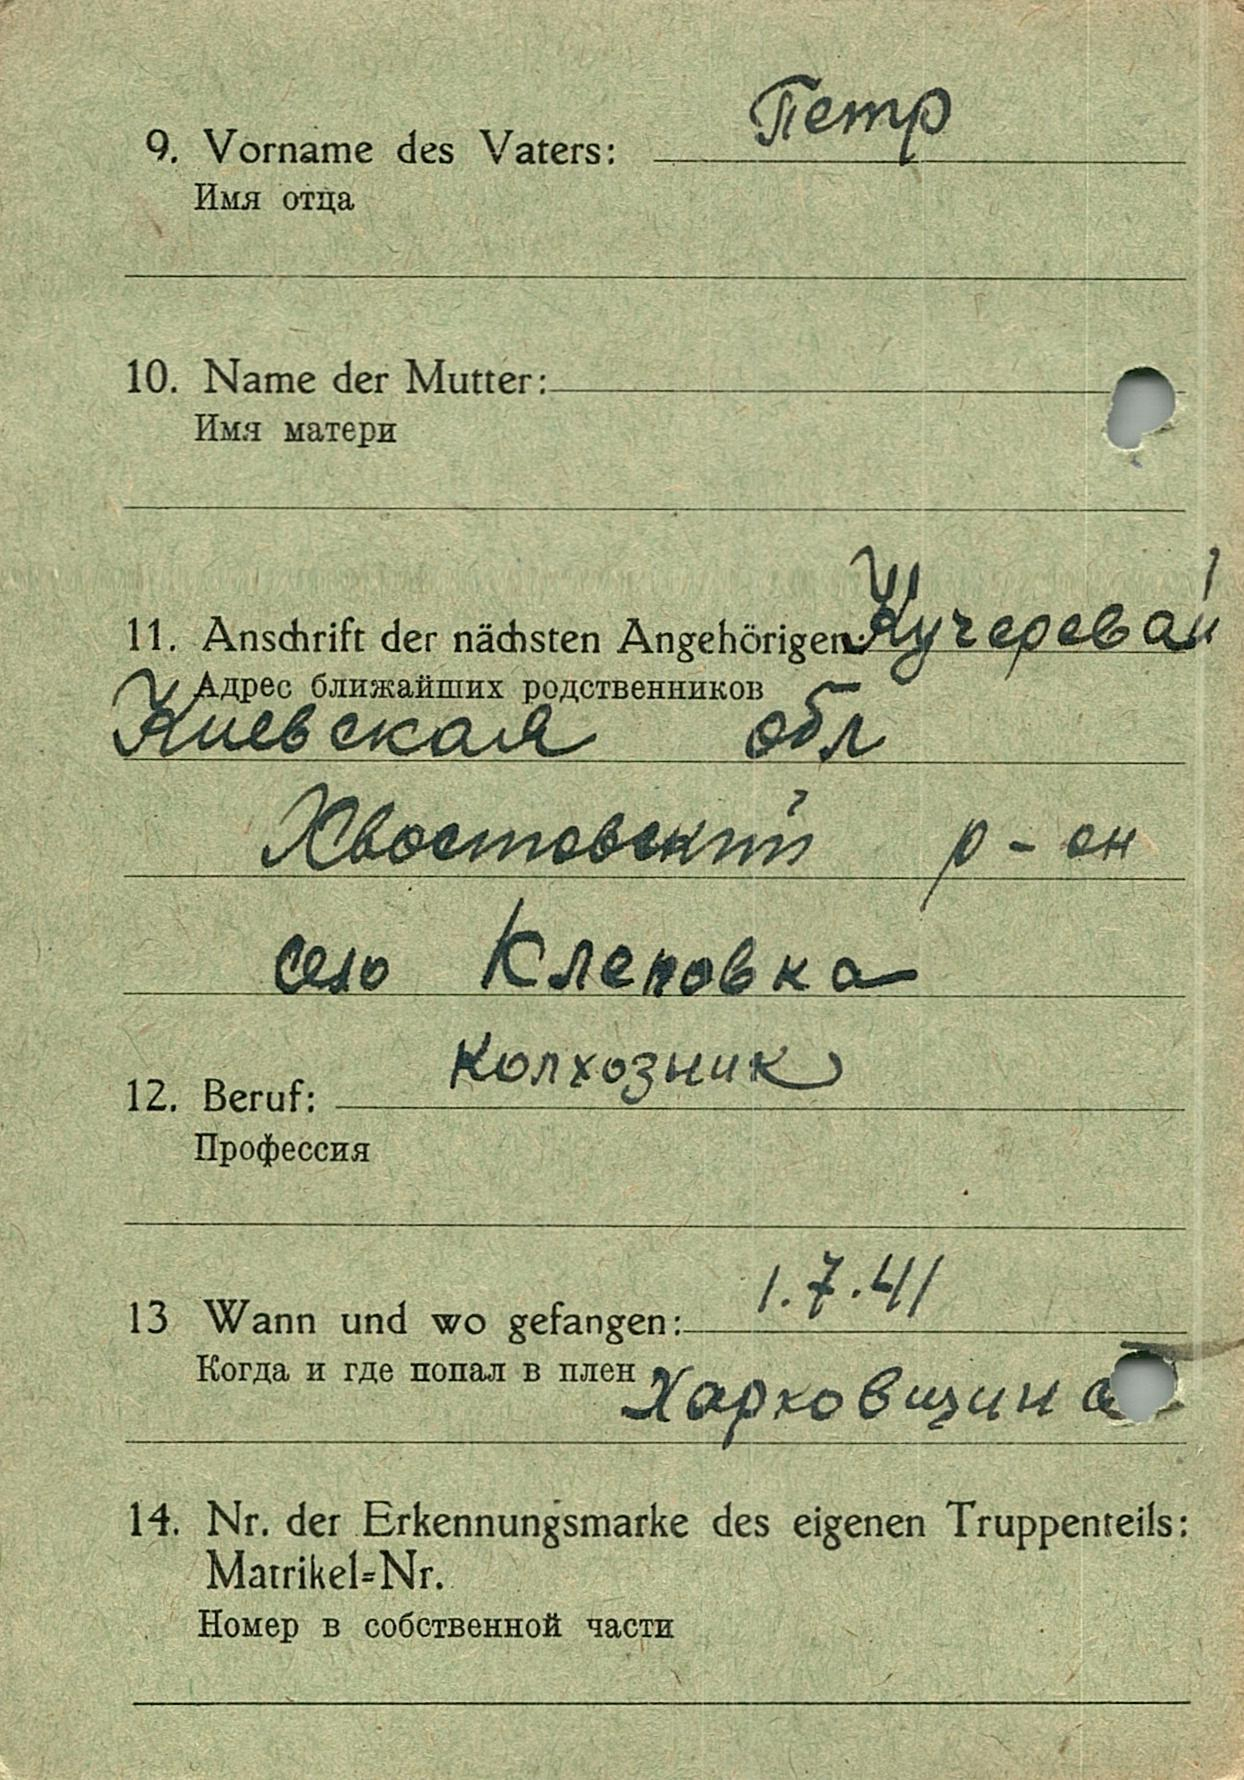 Петр
9. Vorname des Vaters:
Имя отца
10. Name der Mutter:
Имя матери
11. Anschrift der nächsten Angehörigen: Кучеревай
Адрес ближайших родственников
Киевская обл
Хвостовский р-он
село Клеповка
колхозник
12. Beruf:
Профессия
1.7.41
13 Wann und wo gefangen:
Когда и где попал в плен Харковщина
14. Nr. der Erkennungsmarke des eigenen Truppenteils:
Matrikel-Nr.
Номер в собственной части